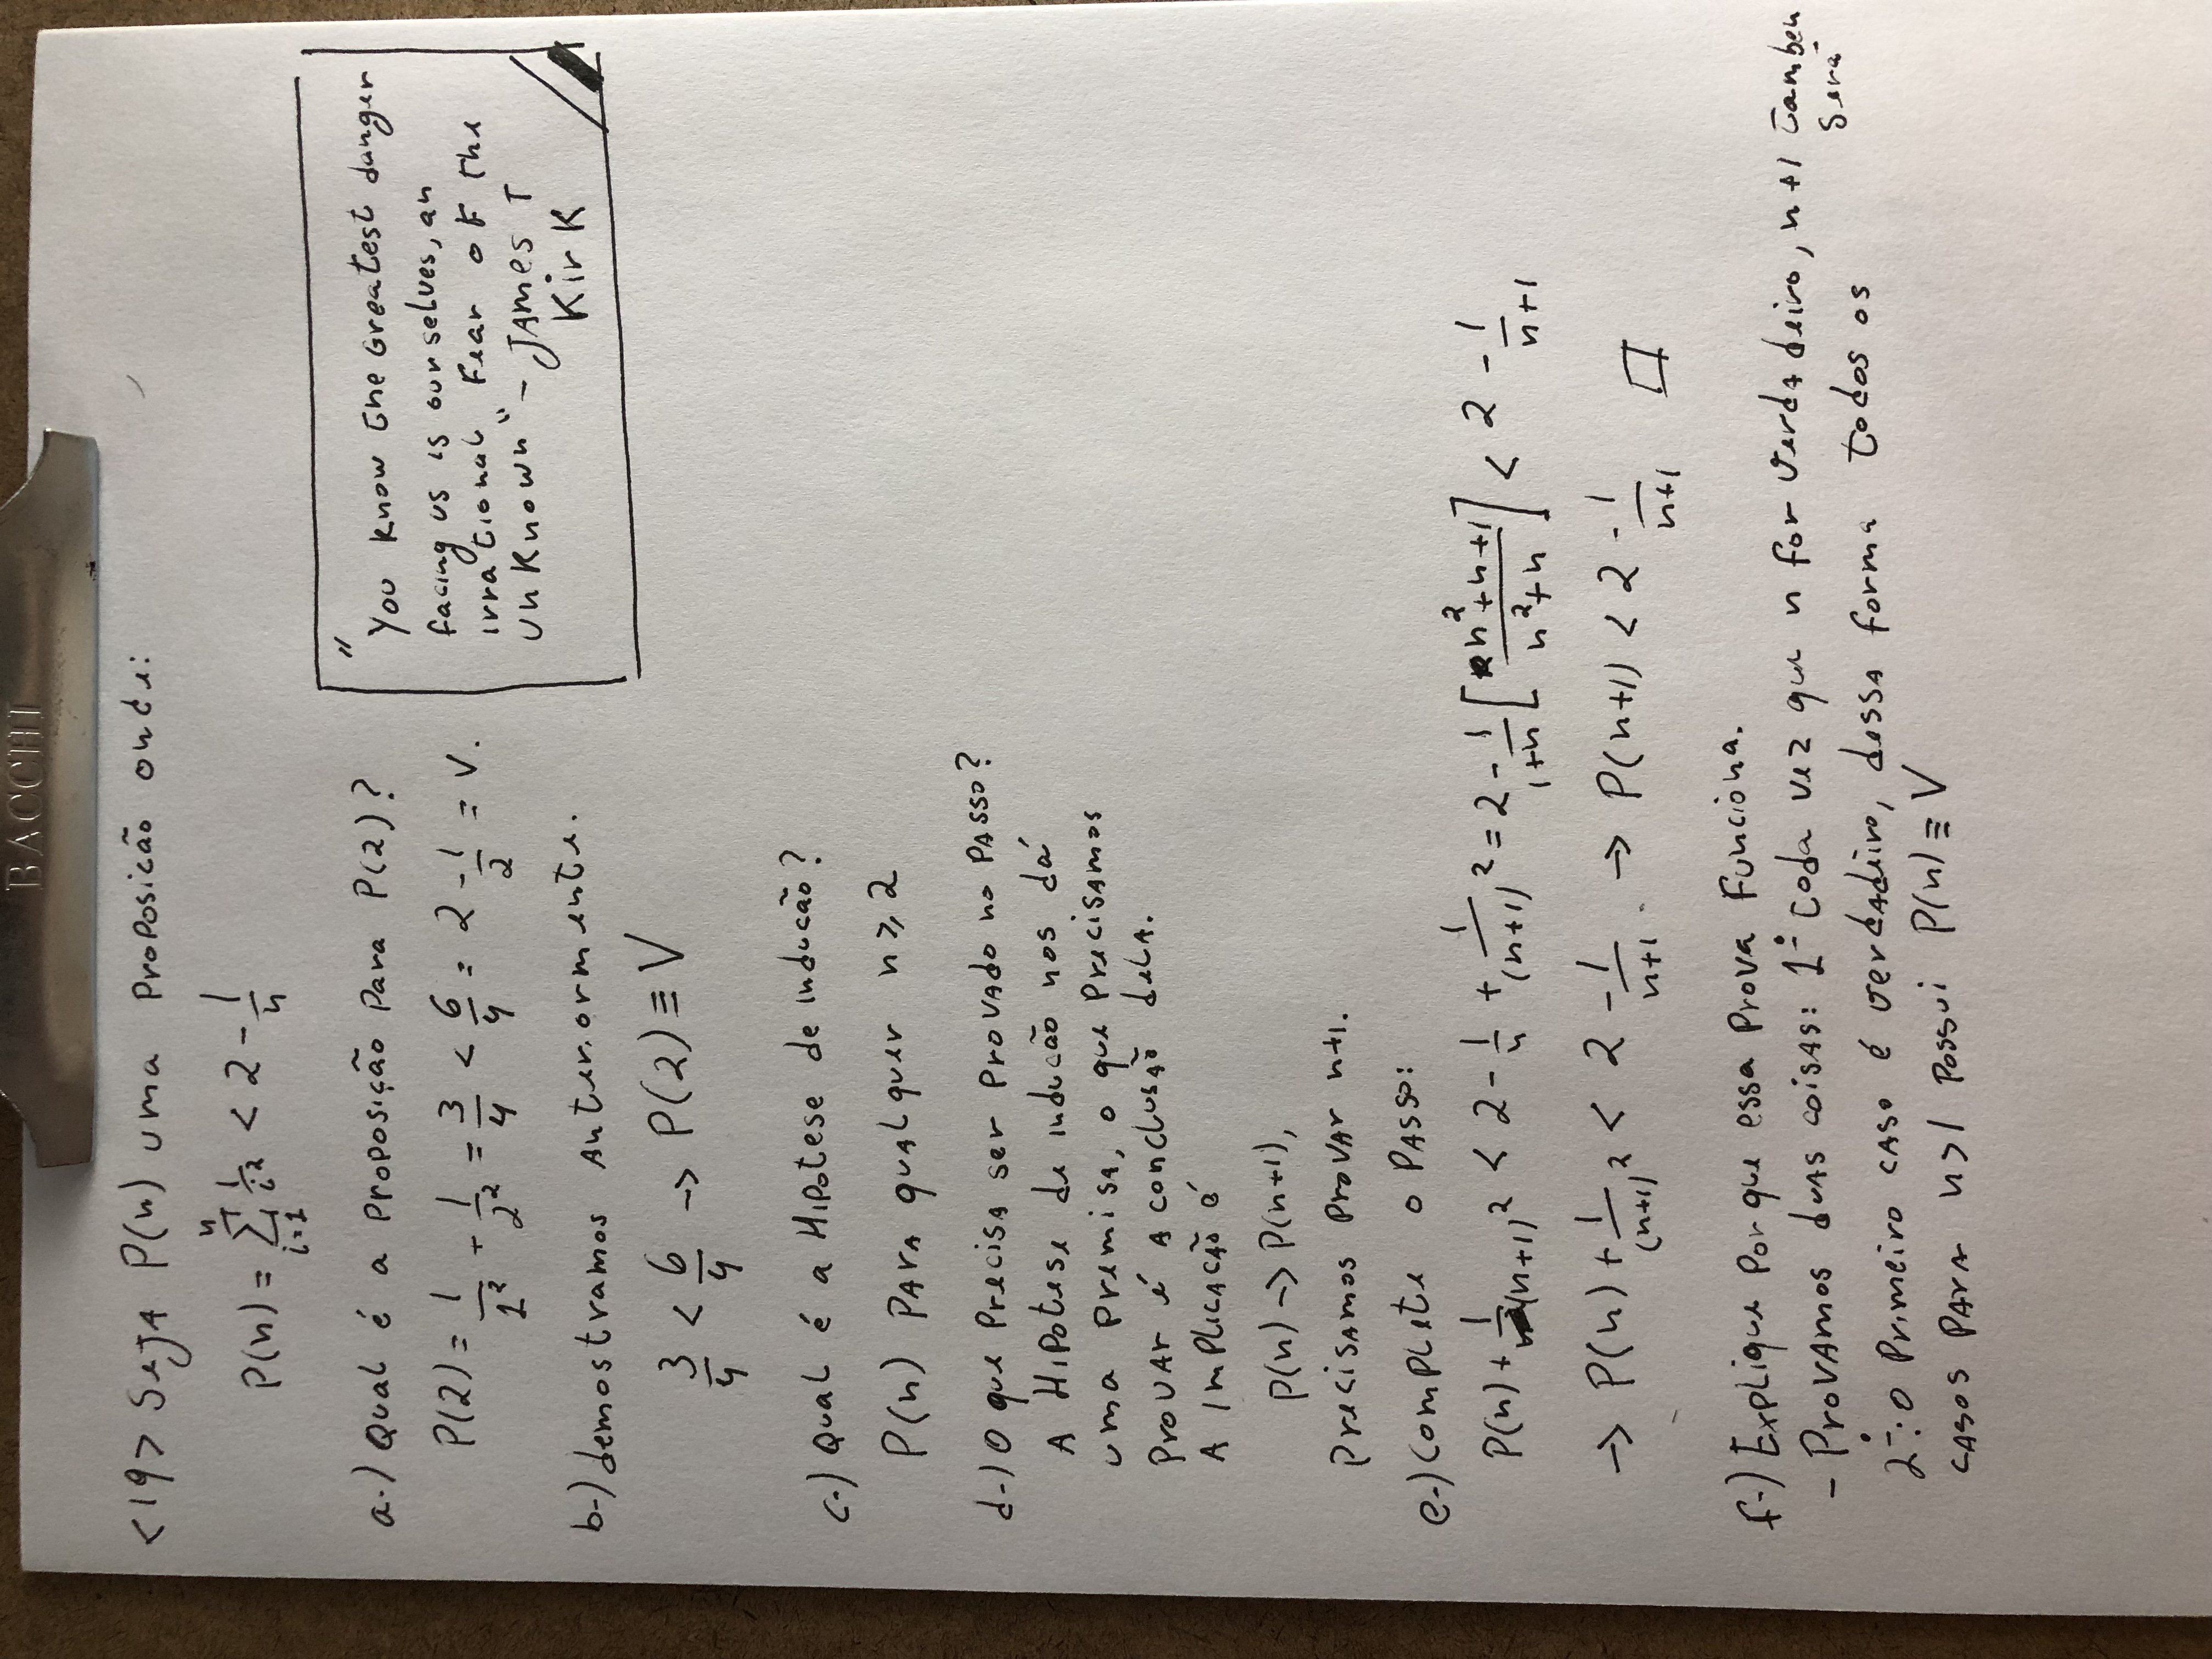 BACCHI
<19> Seja P(n) uma proposicão onde:
P(n) = ∑_{i=1}^{n} 1/i² < 2 - 1/n
a.) Qual é a proposição para P(2)?
P(2) = 1/1² + 1/2² = 3/4 < 6/4 = 2 - 1/2 = V.
"You know the Greatest danger
facing us is ourselves, an
irrational Fear of the
unknown" - James T
Kirk
b-) demostramos anteriormente.
3/4 < 6/4 -> P(2) ≡ V
c-) Qual é a Hipotese de inducão?
P(n) para qualquer n ≥ 2
d-) O que precisa ser provado no passo?
A Hipotese de inducão nos dá
uma premisa, o que precisamos
provar é a conclusão dela.
A implicacão é
P(n) -> P(n+1),
precisamos provar n+1.
e-) Complete o passo:
P(n) + 1/(n+1)² < 2 - 1/n + 1/(n+1)² = 2 - 1/(1+n) [(n²+n+1)/(n²+n)] < 2 - 1/(n+1)
-> P(n) + 1/(n+1)² < 2 - 1/(n+1) -> P(n+1) < 2 - 1/(n+1) □
f-) Explique por que essa prova funciona.
- Provamos duas coisas: 1º toda vez que n for verdadeiro, n+1 tambem
será
2º: o primeiro caso é verdadeiro, dessa forma todos os
casos para n>1 possui P(n) ≡ V